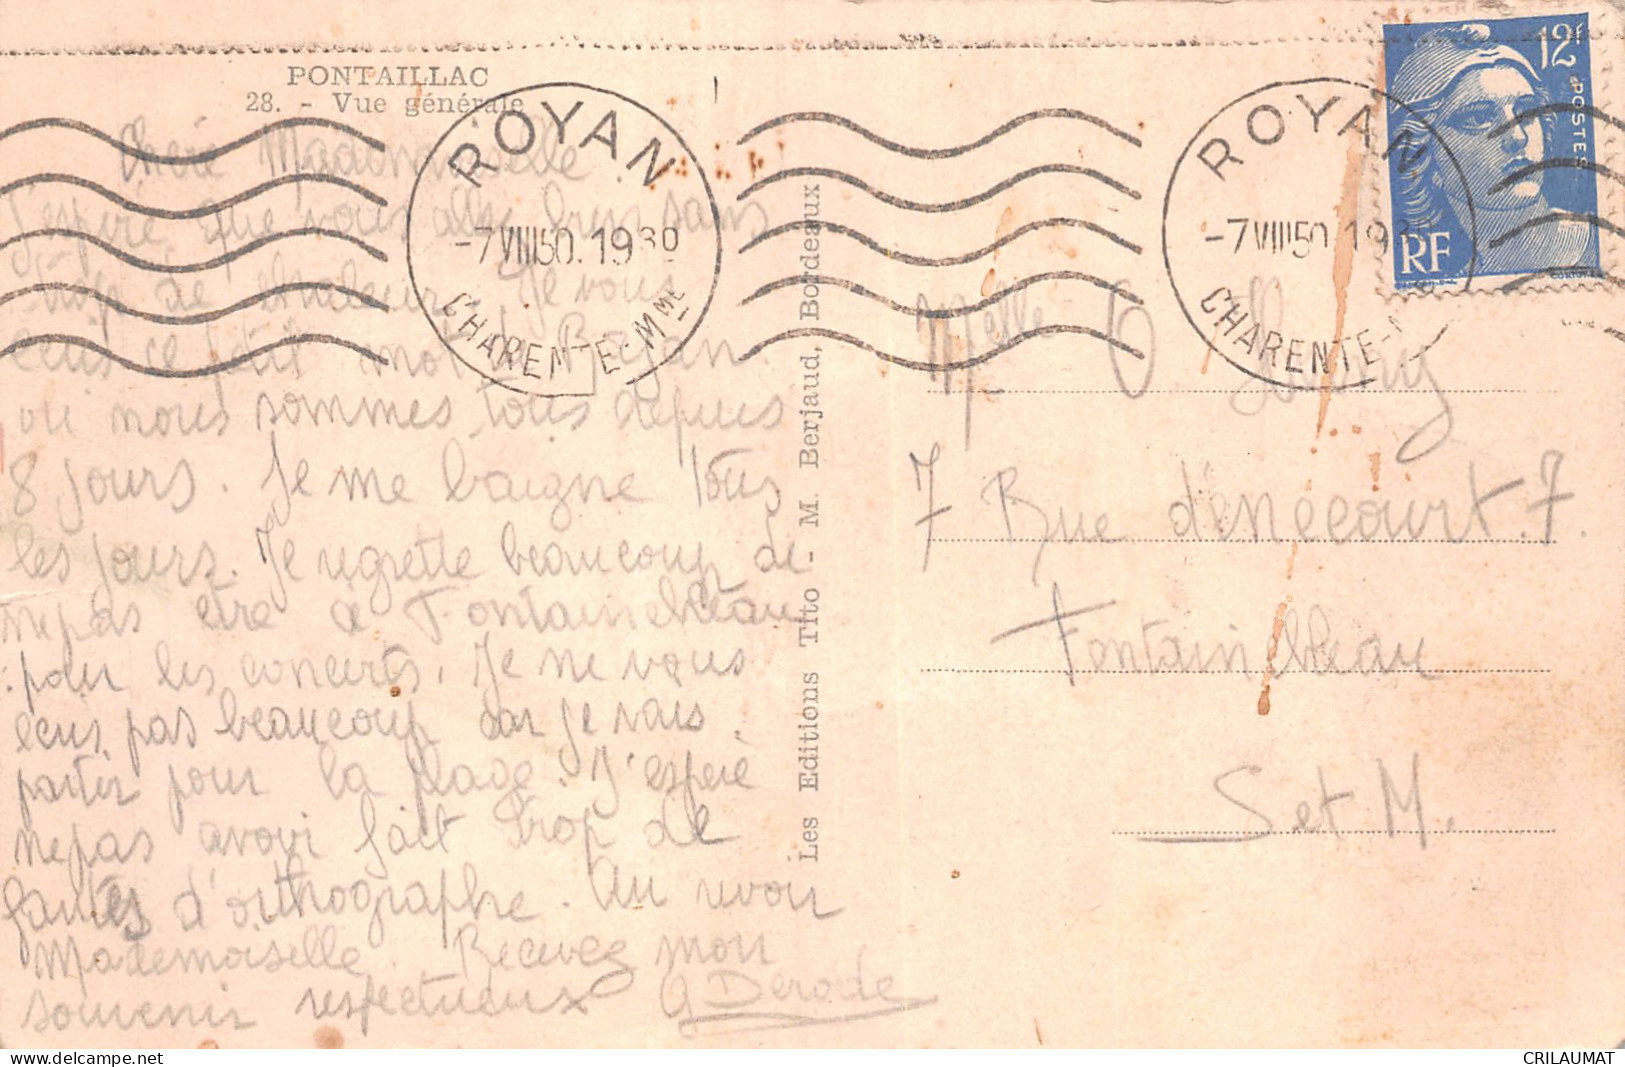 PONTAILLAC
28. - Vue générale
Cheré Mademoiselle
J'espère que vous allez bien sans
trop de chaleur. Je vous
ecris ce petit mot Royan
ou nous sommes tous depuis
8 jours. Je me baigne tous
les jours. Je regrette beaucoup de
ne pas etre à Fontainebleau
pour les concerts. Je ne vous
ecris pas beaucoup car je vais
partir pour la plage. J'espère
nepas avoir fait trop de
fautes d'orthographe. Au revoir
Mademoiselle. Recevez mon
souvenir respectueux G Derode
Les Editions Tito - M. Berjaud, Bordeaux
ROYAN
-7 VIII 50. 19 30
CHARENTE-Mme
ROYAN
-7 VIII 50 19
CHARENTE-
12F
POSTES
RF
Melle
7 Rue dénecourt. 7.
Fontainebleau
S et M.
delcampe.net
CRILAUMAT